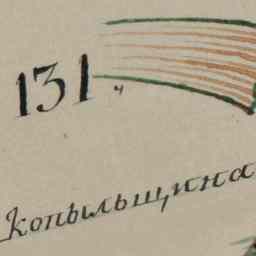 131
Копыльщина